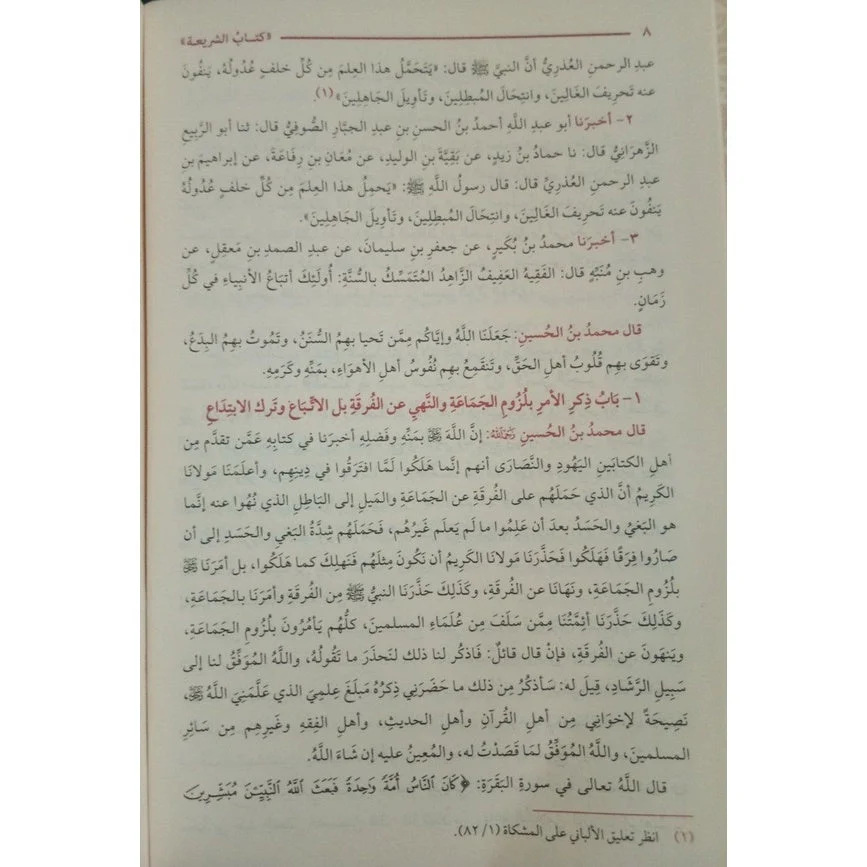 ٨ «كتـابُ الشريعـة»
عبدِ الرحمنِ العُذريُّ أنَّ النبيَّ ﷺ قال: «يَتَحَمَّلُ هذا العِلمَ مِن كُلِّ خلفٍ عُدُولُهُ، يَنفُونَ
عنه تَحرِيفَ الغَالِينَ، وانتِحَالَ المُبطِلِينَ، وتَأوِيلَ الجَاهِلِينَ»(١).
٢- أخبرَنا أبو عبدِ اللَّهِ أحمدُ بنُ الحسنِ بنِ عبدِ الجبَّارِ الصُّوفِيُّ قال: ثنا أبو الرَّبِيعِ
الزَّهرَانِيُّ قال: نا حمادُ بنُ زيدٍ، عن بَقِيَّةَ بنِ الوليدِ، عن مُعَانِ بنِ رِفَاعَةَ، عن إبراهيمَ بنِ
عبدِ الرحمنِ العُذريِّ قال: قال رسولُ اللَّهِ ﷺ: «يَحمِلُ هذا العِلمَ مِن كُلِّ خلفٍ عُدُولُهُ
يَنفُونَ عنه تَحرِيفَ الغَالِينَ، وانتِحَالَ المُبطِلِينَ، وتَأوِيلَ الجَاهِلِينَ».
٣- أخبرَنا محمدُ بنُ بُكَيرٍ، عن جعفرِ بنِ سليمانَ، عن عبدِ الصمدِ بنِ مَعقِلٍ، عن
وهبِ بنِ مُنَبِّهٍ قال: الفَقِيهُ العَفِيفُ الزَّاهِدُ المُتَمَسِّكُ بالسُّنَّةِ: أُولَئِكَ أتبَاعُ الأنبِياءِ في كُلِّ
زَمَانٍ.
قال محمدُ بنُ الحُسينِ: جَعَلَنَا اللَّهُ وإيَّاكُم مِمَّن تَحيا بهِمُ السُّنَنُ، وتَمُوتُ بهِمُ البِدَعُ،
وتَقوَى بهِم قُلُوبُ أهلِ الحَقِّ، وتَنقَمِعُ بهِم نُفُوسُ أهلِ الأهوَاءِ، بمَنِّهِ وكَرَمِهِ.
١- بَابُ ذِكرِ الأمرِ بلُزُومِ الجَمَاعَةِ والنَّهيِ عن الفُرقَةِ بل الاتِّبَاعَ وتَركَ الابتِدَاعِ
قال محمدُ بنُ الحُسينِ رَحِمَهُ اللَّهُ: إنَّ اللَّهَ ﷻ بمَنِّهِ وفَضلِهِ أخبرَنا في كتابِهِ عَمَّن تقدَّم مِن
أهلِ الكتابَينِ اليَهُودِ والنَّصَارَى أنهم إنَّما هَلَكُوا لَمَّا افتَرَقُوا في دِينِهِم، وأعلَمَنَا مَولانَا
الكَرِيمُ أنَّ الذي حَمَلَهُم على الفُرقَةِ عن الجَمَاعَةِ والمَيلِ إلى البَاطِلِ الذي نُهُوا عنه إنَّما
هو البَغيُ والحَسَدُ بعدَ أن عَلِمُوا ما لَم يَعلَم غَيرُهُم، فَحَمَلَهُم شِدَّةُ البَغيِ والحَسَدِ إلى أن
صَارُوا فِرَقًا فَهَلَكُوا فَحَذَّرَنَا مَولانَا الكَرِيمُ أن نَكُونَ مِثلَهُم فَنَهلِكَ كما هَلَكُوا، بل أمَرَنَا ﷻ
بلُزُومِ الجَمَاعَةِ، ونَهَانَا عن الفُرقَةِ، وكَذَلِكَ حَذَّرَنَا النبيُّ ﷺ مِن الفُرقَةِ وأمَرَنَا بالجَمَاعَةِ،
وكَذَلِكَ حَذَّرَنَا أئِمَّتُنَا مِمَّن سَلَفَ مِن عُلَمَاءِ المسلمينَ، كلُّهُم يَأمُرُونَ بلُزُومِ الجَمَاعَةِ،
ويَنهَونَ عن الفُرقَةِ، فإنْ قال قائلٌ: فَاذكُر لنا ذلك لنَحذَرَ ما تَقُولُهُ، واللَّهُ المُوَفِّقُ لنا إلى
سَبِيلِ الرَّشَادِ، قِيلَ له: سَأذكُرُ مِن ذلك ما حَضَرَنِي ذِكرُهُ مَبلَغَ عِلمِيَ الذي عَلَّمَنِيَ اللَّهُ ﷻ،
نَصِيحَةً لإخوَانِي مِن أهلِ القُرآنِ وأهلِ الحديثِ، وأهلِ الفِقهِ وغَيرِهِم مِن سَائِرِ
المسلمينَ، واللَّهُ المُوَفِّقُ لمَا قَصَدْتُ له، والمُعِينُ عليه إن شَاءَ اللَّهُ.
قال اللَّهُ تعالى في سورةِ البَقَرَةِ: ﴿كَانَ ٱلنَّاسُ أُمَّةً وَٰحِدَةً فَبَعَثَ ٱللَّهُ ٱلنَّبِيِّـۧنَ مُبَشِّرِينَ
(١) انظر تعليق الألباني على المشكاة (١/ ٨٢).